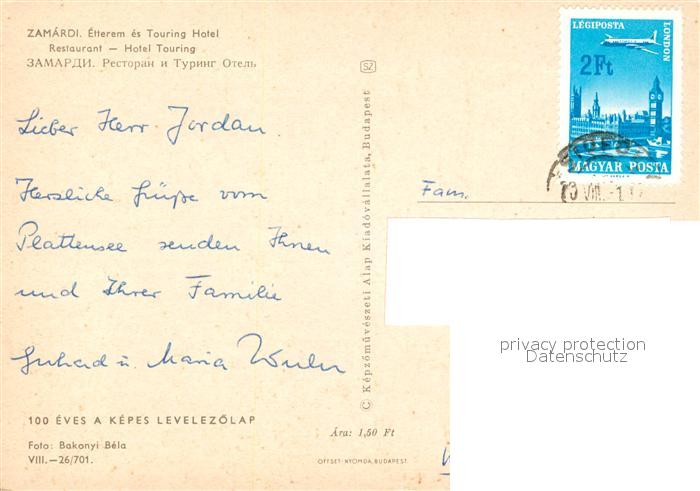 ZAMÁRDI. Étterem és Touring Hotel
Restaurant — Hotel Touring
ЗАМАРДИ. Ресторан и Туринг Отель
Lieber Herr Jordan.
Herzliche Grüße vom
Plattensee senden Ihnen
und Ihrer Familie
u. Maria
100 ÉVES A KÉPES LEVELEZŐLAP
Foto: Bakonyi Béla
VIII.—26/701.
SZ
© Képzőművészeti Alap Kiadóvállalata, Budapest
Ára: 1,50 Ft
OFFSET-NYOMDA, BUDAPEST.
LÉGIPOSTA
LONDON
2Ft
MAGYAR POSTA
Fam.
privacy protection
Datenschutz